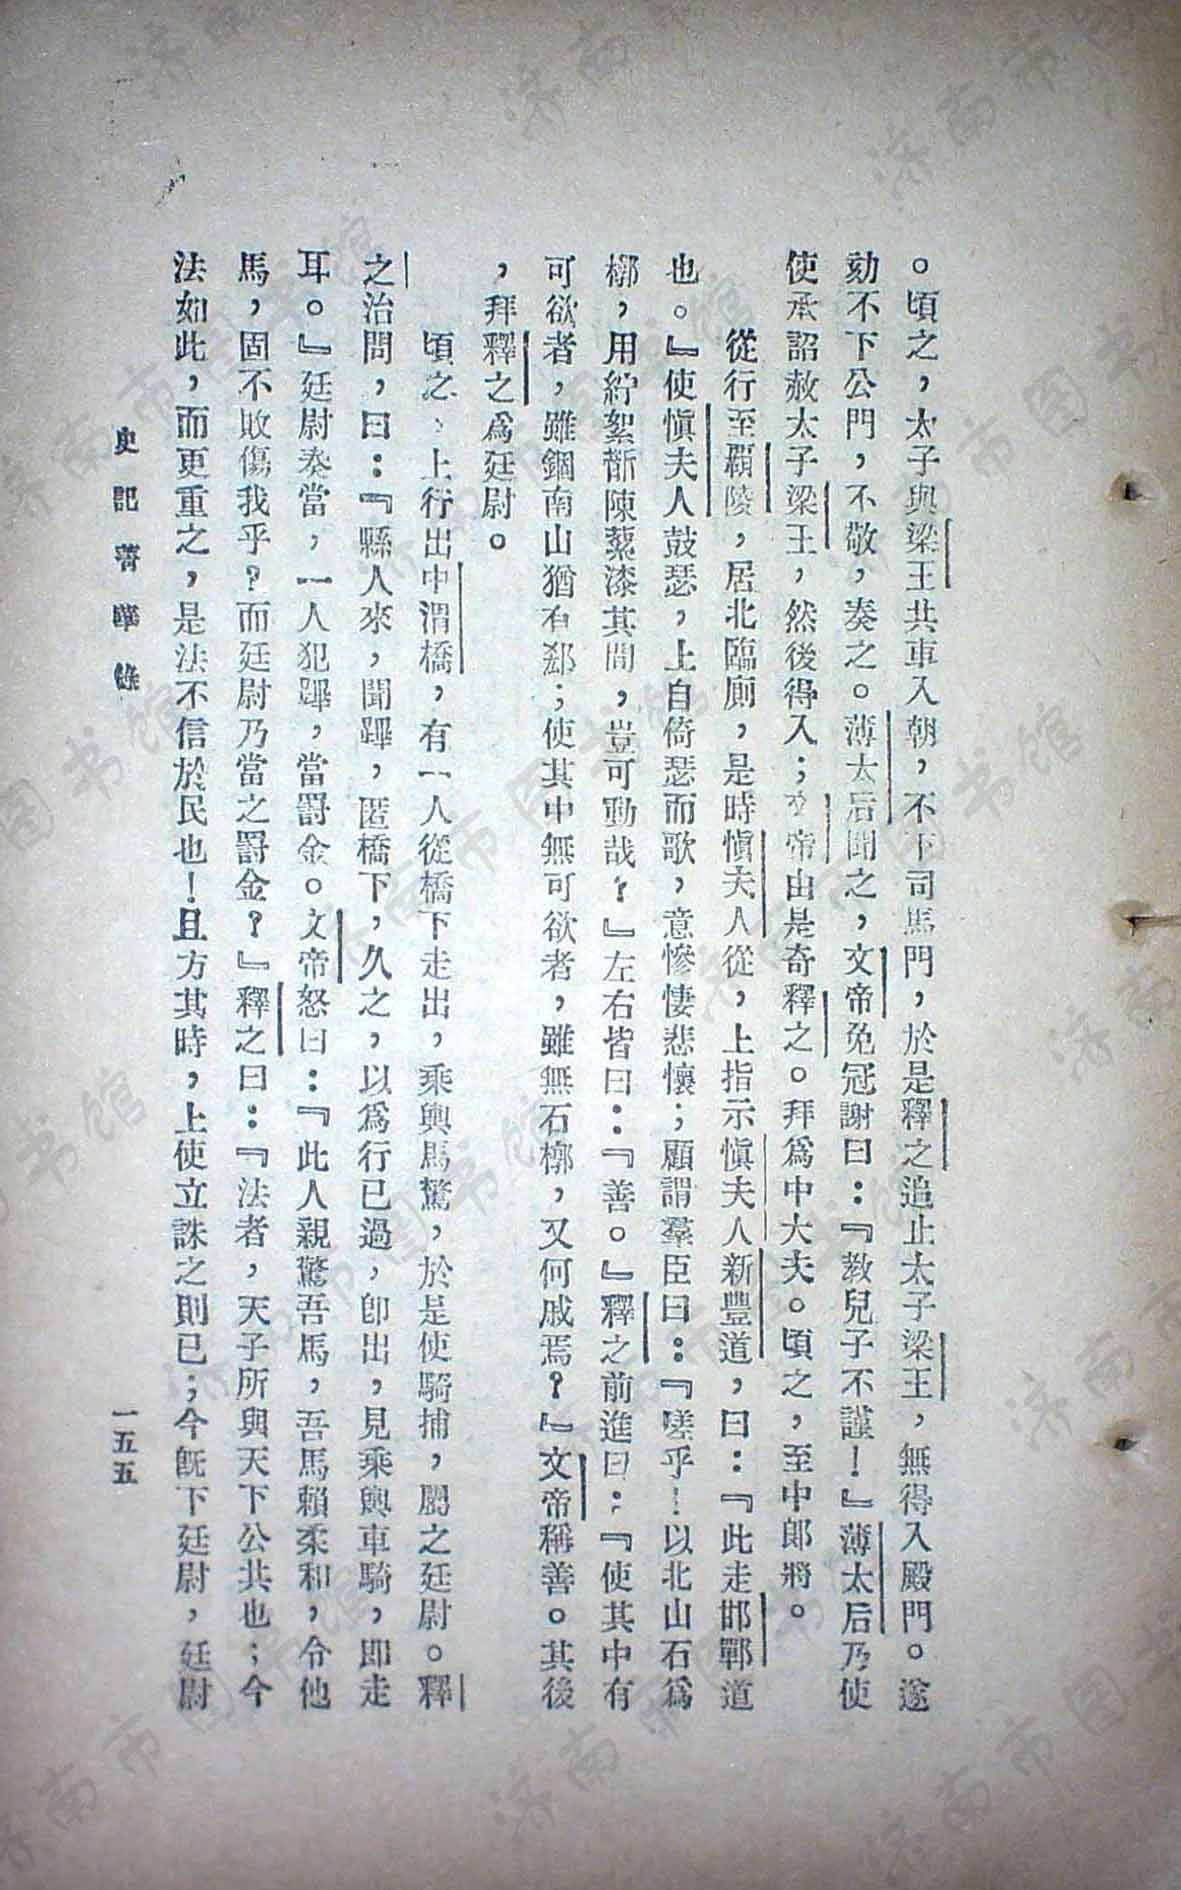 。頃之，太子與梁王共車入朝，不下司馬門，於是釋之追止太子梁王，無得入殿門。遂
劾不下公門，不敬，奏之。薄太后聞之，文帝免冠謝曰：『教兒子不謹！』薄太后乃使
使承詔赦太子梁王，然後得入；文帝由是奇釋之。拜爲中大夫。頃之，至中郎將。
從行至霸陵，居北臨廁，是時愼夫人從，上指示愼夫人新豐道，曰：『此走邯鄲道
也。』使愼夫人鼓瑟，上自倚瑟而歌，意慘悽悲懷；顧謂羣臣曰：『嗟乎！以北山石爲
槨，用紵絮斮陳蘂漆其間，豈可動哉？』左右皆曰：『善。』釋之前進曰：『使其中有
可欲者，雖錮南山猶有郄；使其中無可欲者，雖無石槨，又何戚焉？』文帝稱善。其後
，拜釋之爲廷尉。
頃之，上行出中渭橋，有一人從橋下走出，乘輿馬驚，於是使騎捕，屬之廷尉。釋
之治問，曰：『縣人來，聞蹕，匿橋下，久之，以爲行已過，卽出，見乘輿車騎，即走
耳。』廷尉奏當，一人犯蹕，當罰金。文帝怒曰：『此人親驚吾馬，吾馬賴柔和，令他
馬，固不敗傷我乎？而廷尉乃當之罰金？』釋之曰：『法者，天子所與天下公共也；今
法如此，而更重之，是法不信於民也！且方其時，上使立誅之則已；今旣下廷尉，廷尉
史記菁華錄
一五五
济南市图书馆